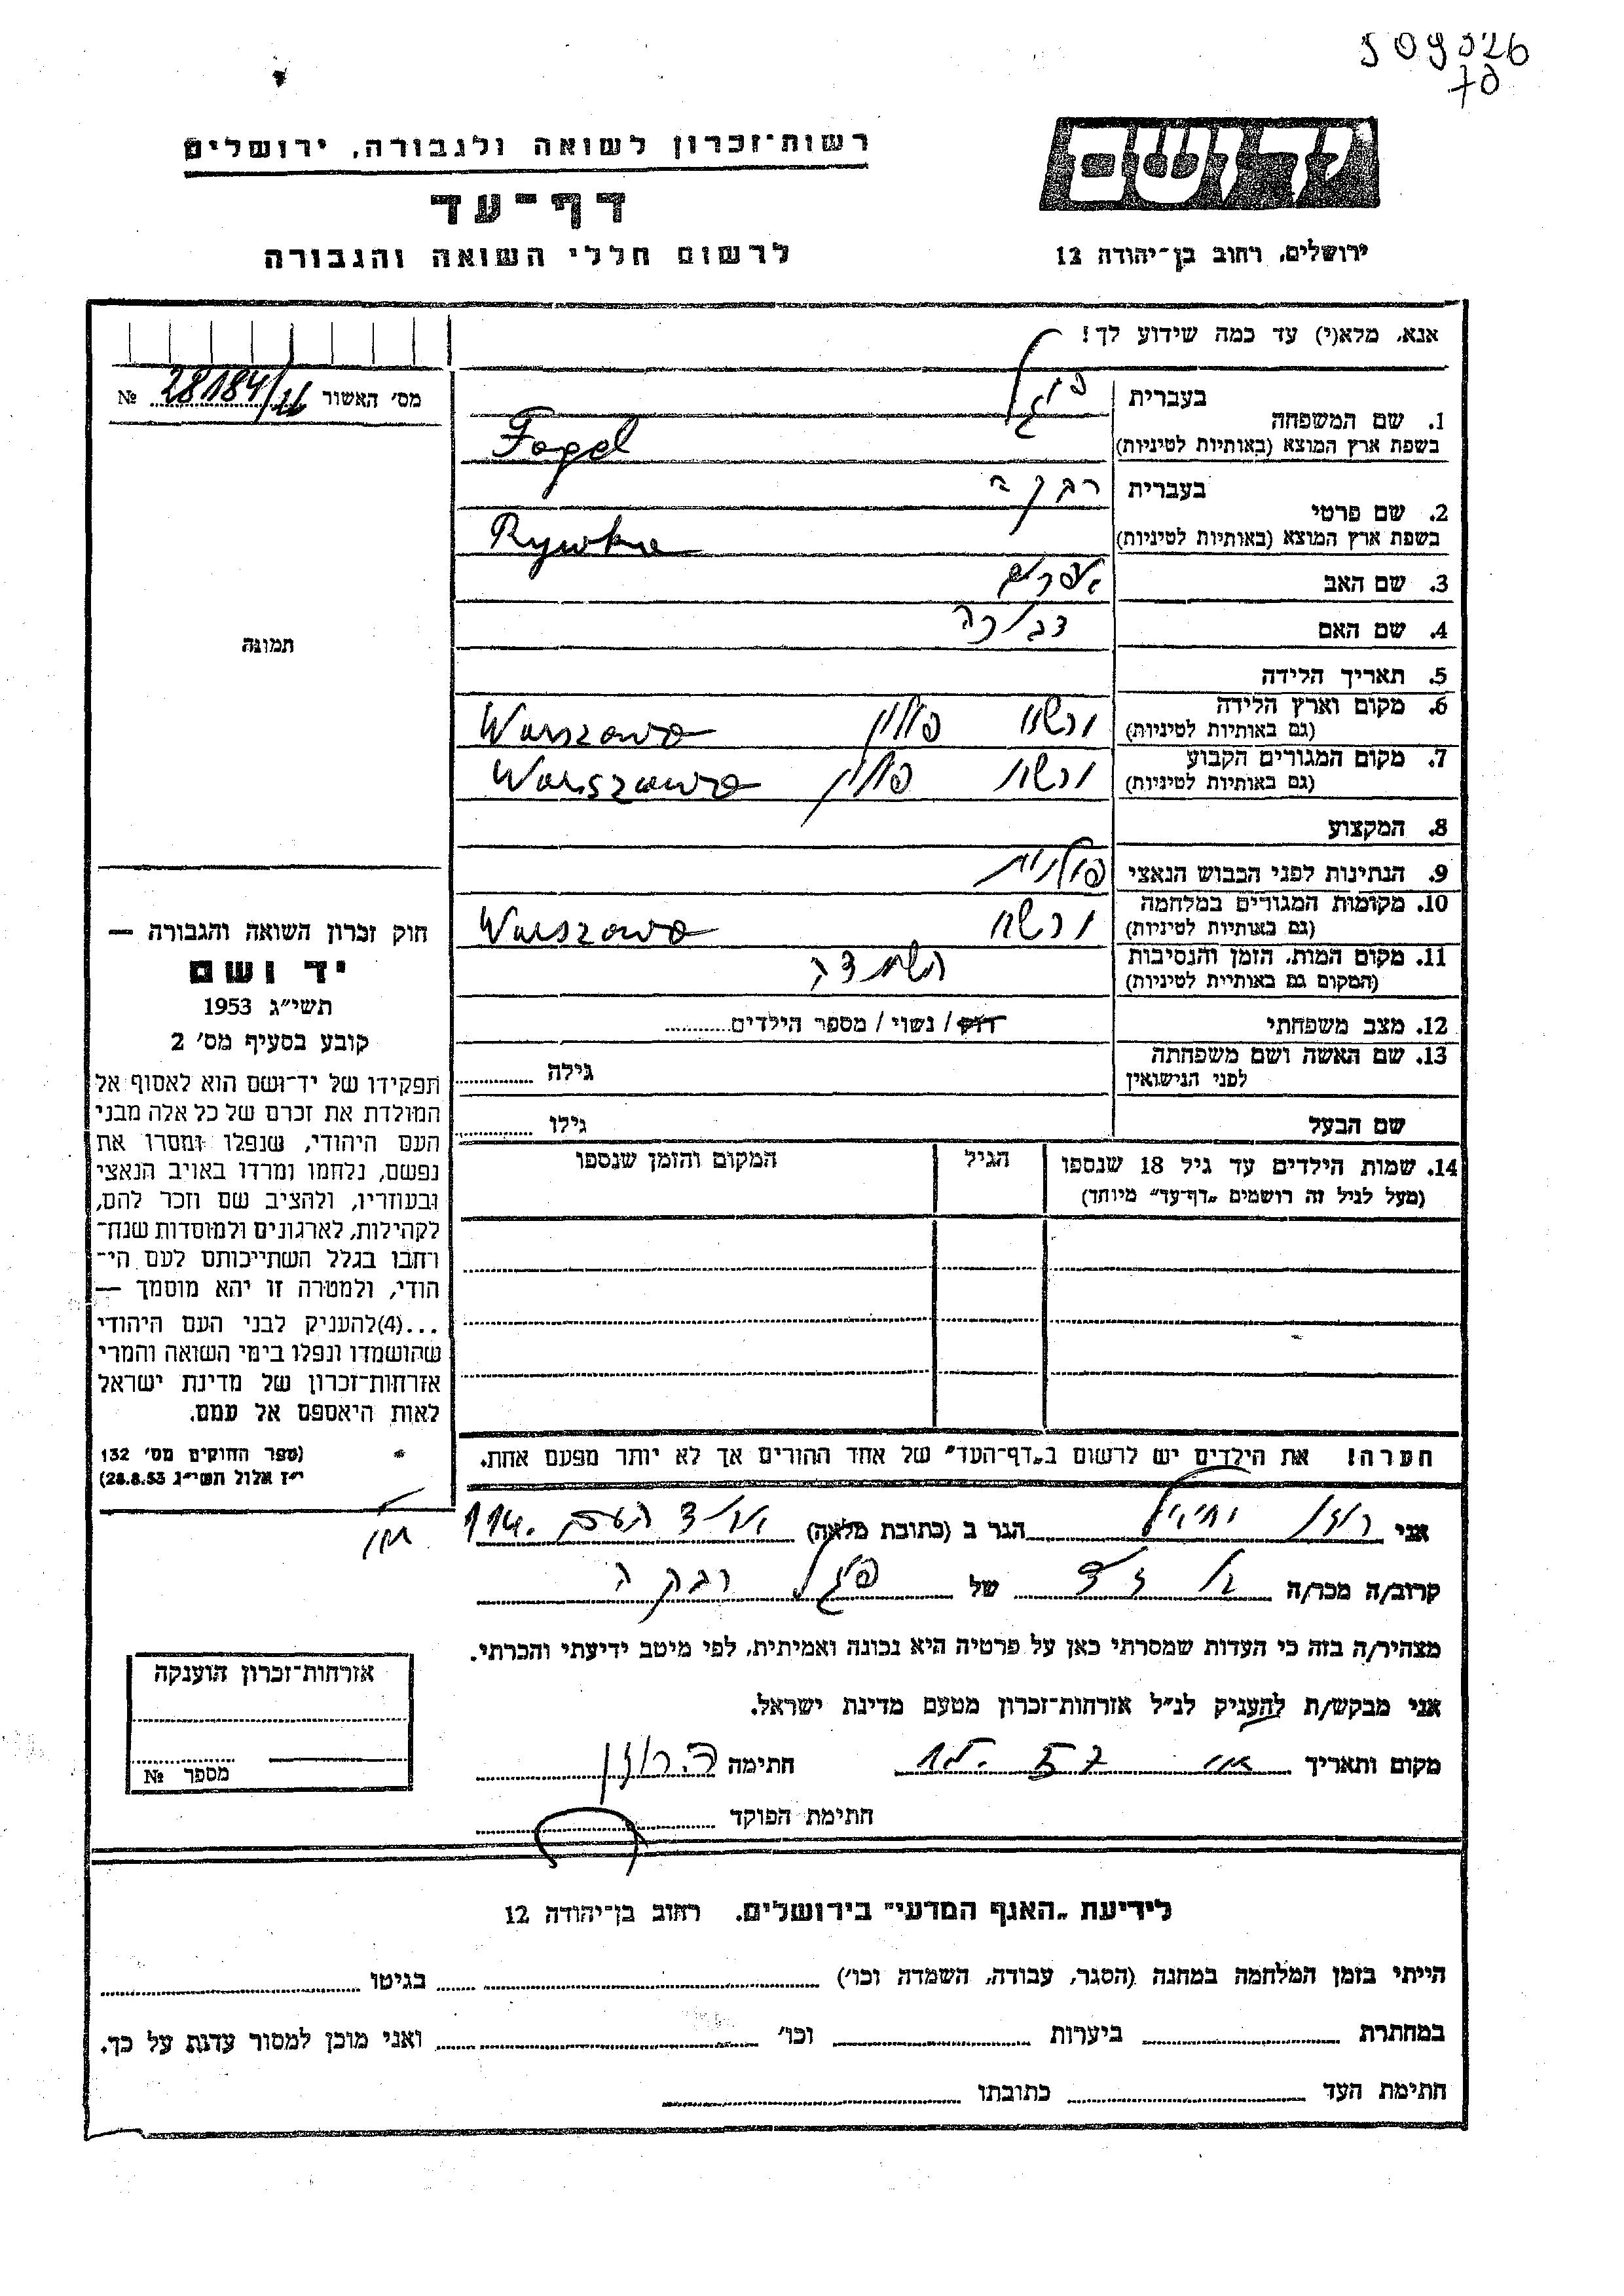 509526
78
יד ושם
ירושלים, רחוב בן־יהודה 12
רשות־זכרון לשואה ולגבורה, ירושלים
דף־עד
לרשום חללי השואה והגבורה
אנא, מלא(י) עד כמה שידוע לך!
מס׳ האשור 28184/71 №
1. שם המשפחה
בעברית פוגל
בשפת ארץ המוצא (באותיות לטיניות) Fogel
2. שם פרטי
בעברית רבקה
בשפת ארץ המוצא (באותיות לטיניות) Rywka
3. שם האב אפרים
4. שם האם
5. תאריך הלידה
6. מקום וארץ הלידה
(גם באותיות לטיניות) ורשה פולין Warszawa
7. מקום המגורים הקבוע
(גם באותיות לטיניות) ורשה פולין Warszawa
8. המקצוע
9. הנתינות לפני הכבוש הנאצי פולנית
10. מקומות המגורים במלחמה
(גם באותיות לטיניות) ורשה Warszawa
11. מקום המות, הזמן והנסיבות
(המקום גם באותיות לטיניות) השמדה
12. מצב משפחתי רווק / נשוי / מספר הילדים
13. שם האשה ושם משפחתה
לפני הנישואין גילה
שם הבעל גילו
14. שמות הילדים עד גיל 18 שנספו הגיל המקום והזמן שנספו
(מעל לגיל זה רושמים „דף־עד" מיוחד)
הערה! את הילדים יש לרשום ב„דף־העד" של אחד ההורים אך לא יותר מפעם אחת.
תמונה
חוק זכרון השואה והגבורה —
יד ושם
תשי״ג 1953
קובע בסעיף מס׳ 2
תפקידו של יד־ושם הוא לאסוף אל
המולדת את זכרם של כל אלה מבני
העם היהודי, שנפלו ומסרו את
נפשם, נלחמו ומרדו באויב הנאצי
ובעוזריו, ולהציב שם וזכר להם,
לקהילות, לארגונים ולמוסדות שנח־
רחבו בגלל השתייכותם לעם הי־
הודי, ולמטרה זו יהא מוסמך —
...(4)להעניק לבני העם היהודי
שהושמדו ונפלו בימי השואה והמרי
אזרחות־זכרון של מדינת ישראל
לאות היאספם אל עמם.
(ספר החוקים מס׳ 132
י״ז אלול תשי״ג 28.8.53)
אני רוזן הגר ב (כתובת מלאה) 114
קרוב/ה מכר/ה של פוגל רבקה
מצהיר/ה בזה כי העדות שמסרתי כאן על פרטיה היא נכונה ואמיתית, לפי מיטב ידיעתי והכרתי.
אני מבקש/ת להעניק לנ״ל אזרחות־זכרון מטעם מדינת ישראל.
מקום ותאריך חתימה רוזן
חתימת הפוקד
אזרחות־זכרון הוענקה
מספר №
לידיעת „האגף המדעי" בירושלים. רחוב בן־יהודה 12
הייתי בזמן המלחמה במחנה (הסגר, עבודה, השמדה וכו׳) בגיטו
במחתרת ביערות וכו׳ ואני מוכן למסור עדות על כך.
חתימת העד כתובתו